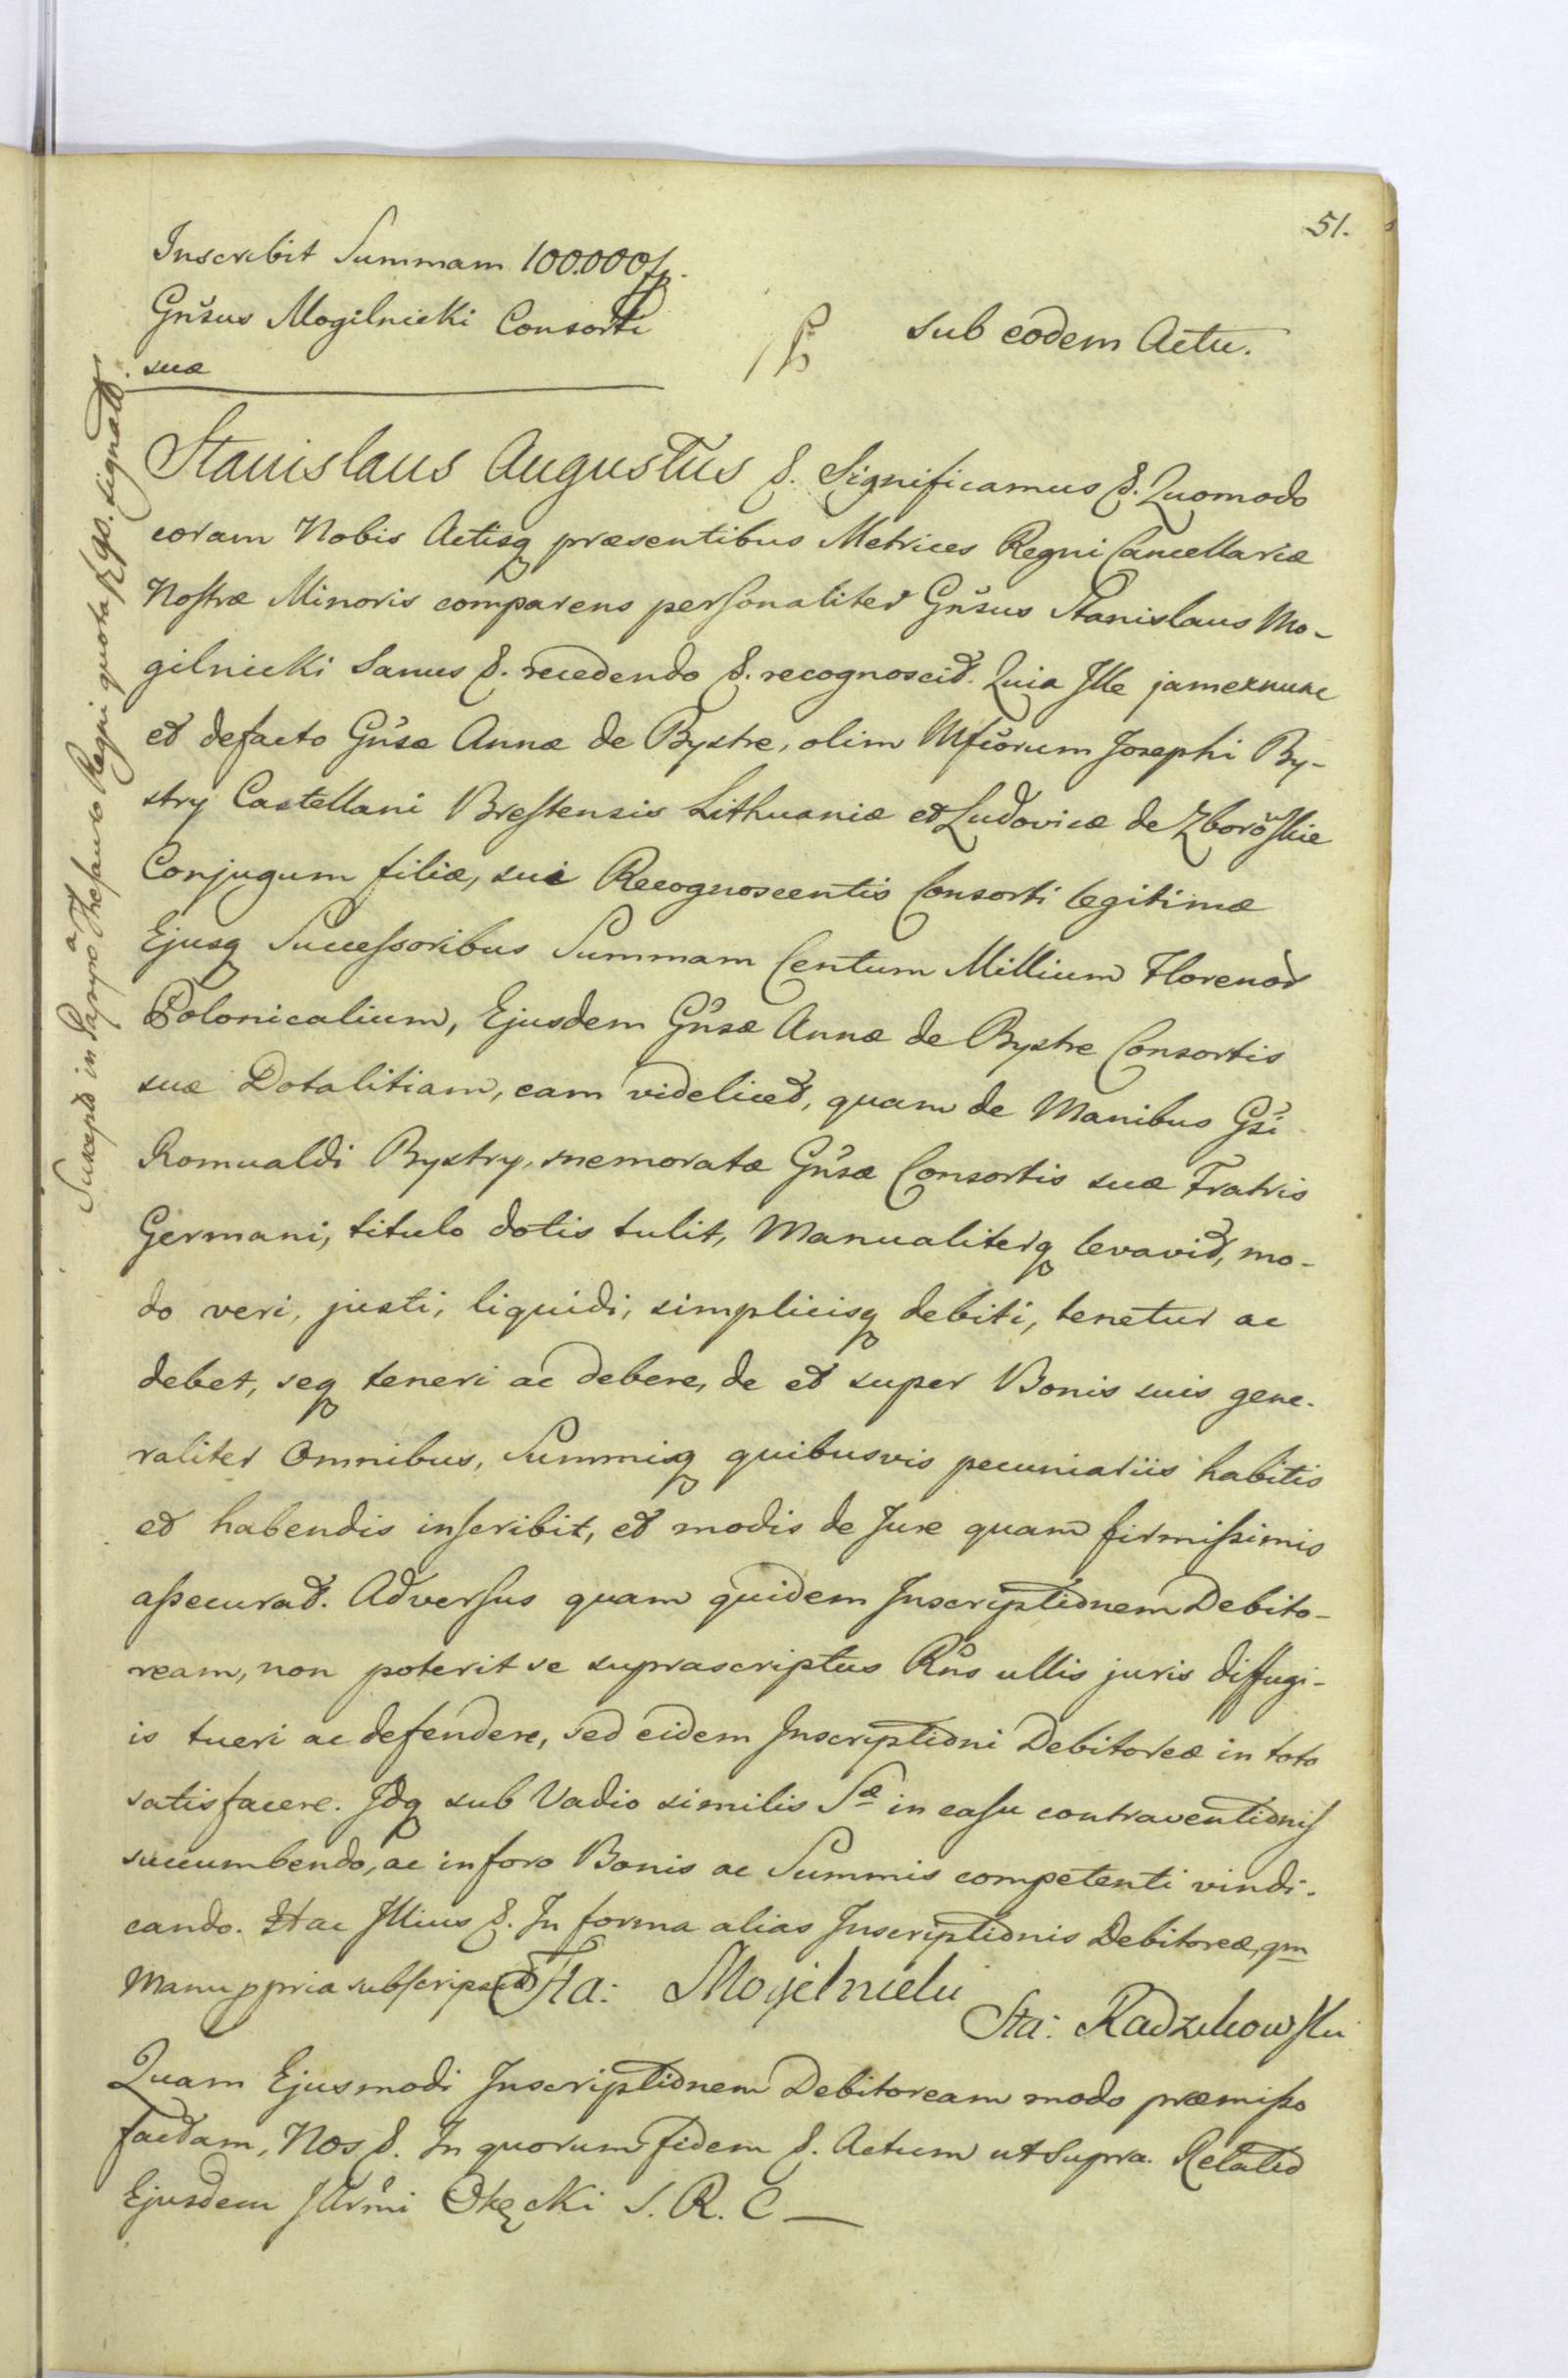 51.
Inscribit Summam 100.000 fp.
Gnsus Mogilnicki Consorti
suæ
sub eodem Actu.
Stanislaus Augustus &. Significamus &. Quomodo
coram Nobis Actisq præsentibus Metrices Regni Cancellariæ
Nostræ Minoris comparens personaliter Gnsus Stanislaus Mo-
gilnicki Sanus &. recedendo &. recognoscit. Quia Ille jamexnunc
et defacto Gnsæ Annæ de Bystre, olim Mfcorum Josephi By-
stry Castellani Brestensis Lithuaniæ et Ludovicæ de Zborowskie
Conjugum filiæ, sui Recognoscentis Consorti legitimæ
Ejusq Successoribus Summam Centum Millium Florenor
Polonicalium, Ejusdem Gnsæ Annæ de Bystre Consortis
suæ Dotalitiam, eam videlicet, quam de Manibus Gsi
Romualdi Bystry, memoratæ Gnsæ Consortis suæ Fratris
Germani, titulo dotis tulit, Manualiterq levavit, mo-
do veri, justi, liquidi, simplicisq debiti, tenetur ac
debet, seq teneri ac debere, de et super Bonis suis gene-
raliter Omnibus, Summisq quibusvis pecuniariis habitis
et habendis inscribit, et modis de Jure quam firmissimis
assecurat. Adversus quam quidem Inscriptionem Debito-
ream, non poterit se suprascriptus Rns ullis juris diffugi-
is tueri ac defendere, sed eidem Inscriptioni Debitoreæ in toto
satisfacere. Idq sub Vadio similis Sæ in casu contraventionis
succumbendo, ac in foro Bonis ac Summis competenti vindi-
cando. Hac Illius &. In forma alias Inscriptionis Debitoreæ, qm
Manu ppria subscripsit Sta: Mogilnicki
Sta: Radzikowski
Quam Ejusmodi Inscriptionem Debitoream modo præmisso
factam, Nos &. In quorum fidem &. Actum ut Supra. Relatio
Ejusdem Illrmi Okęcki S. R. C
Suscepta in Papyro a Thesauro Regni quota fl. signata.